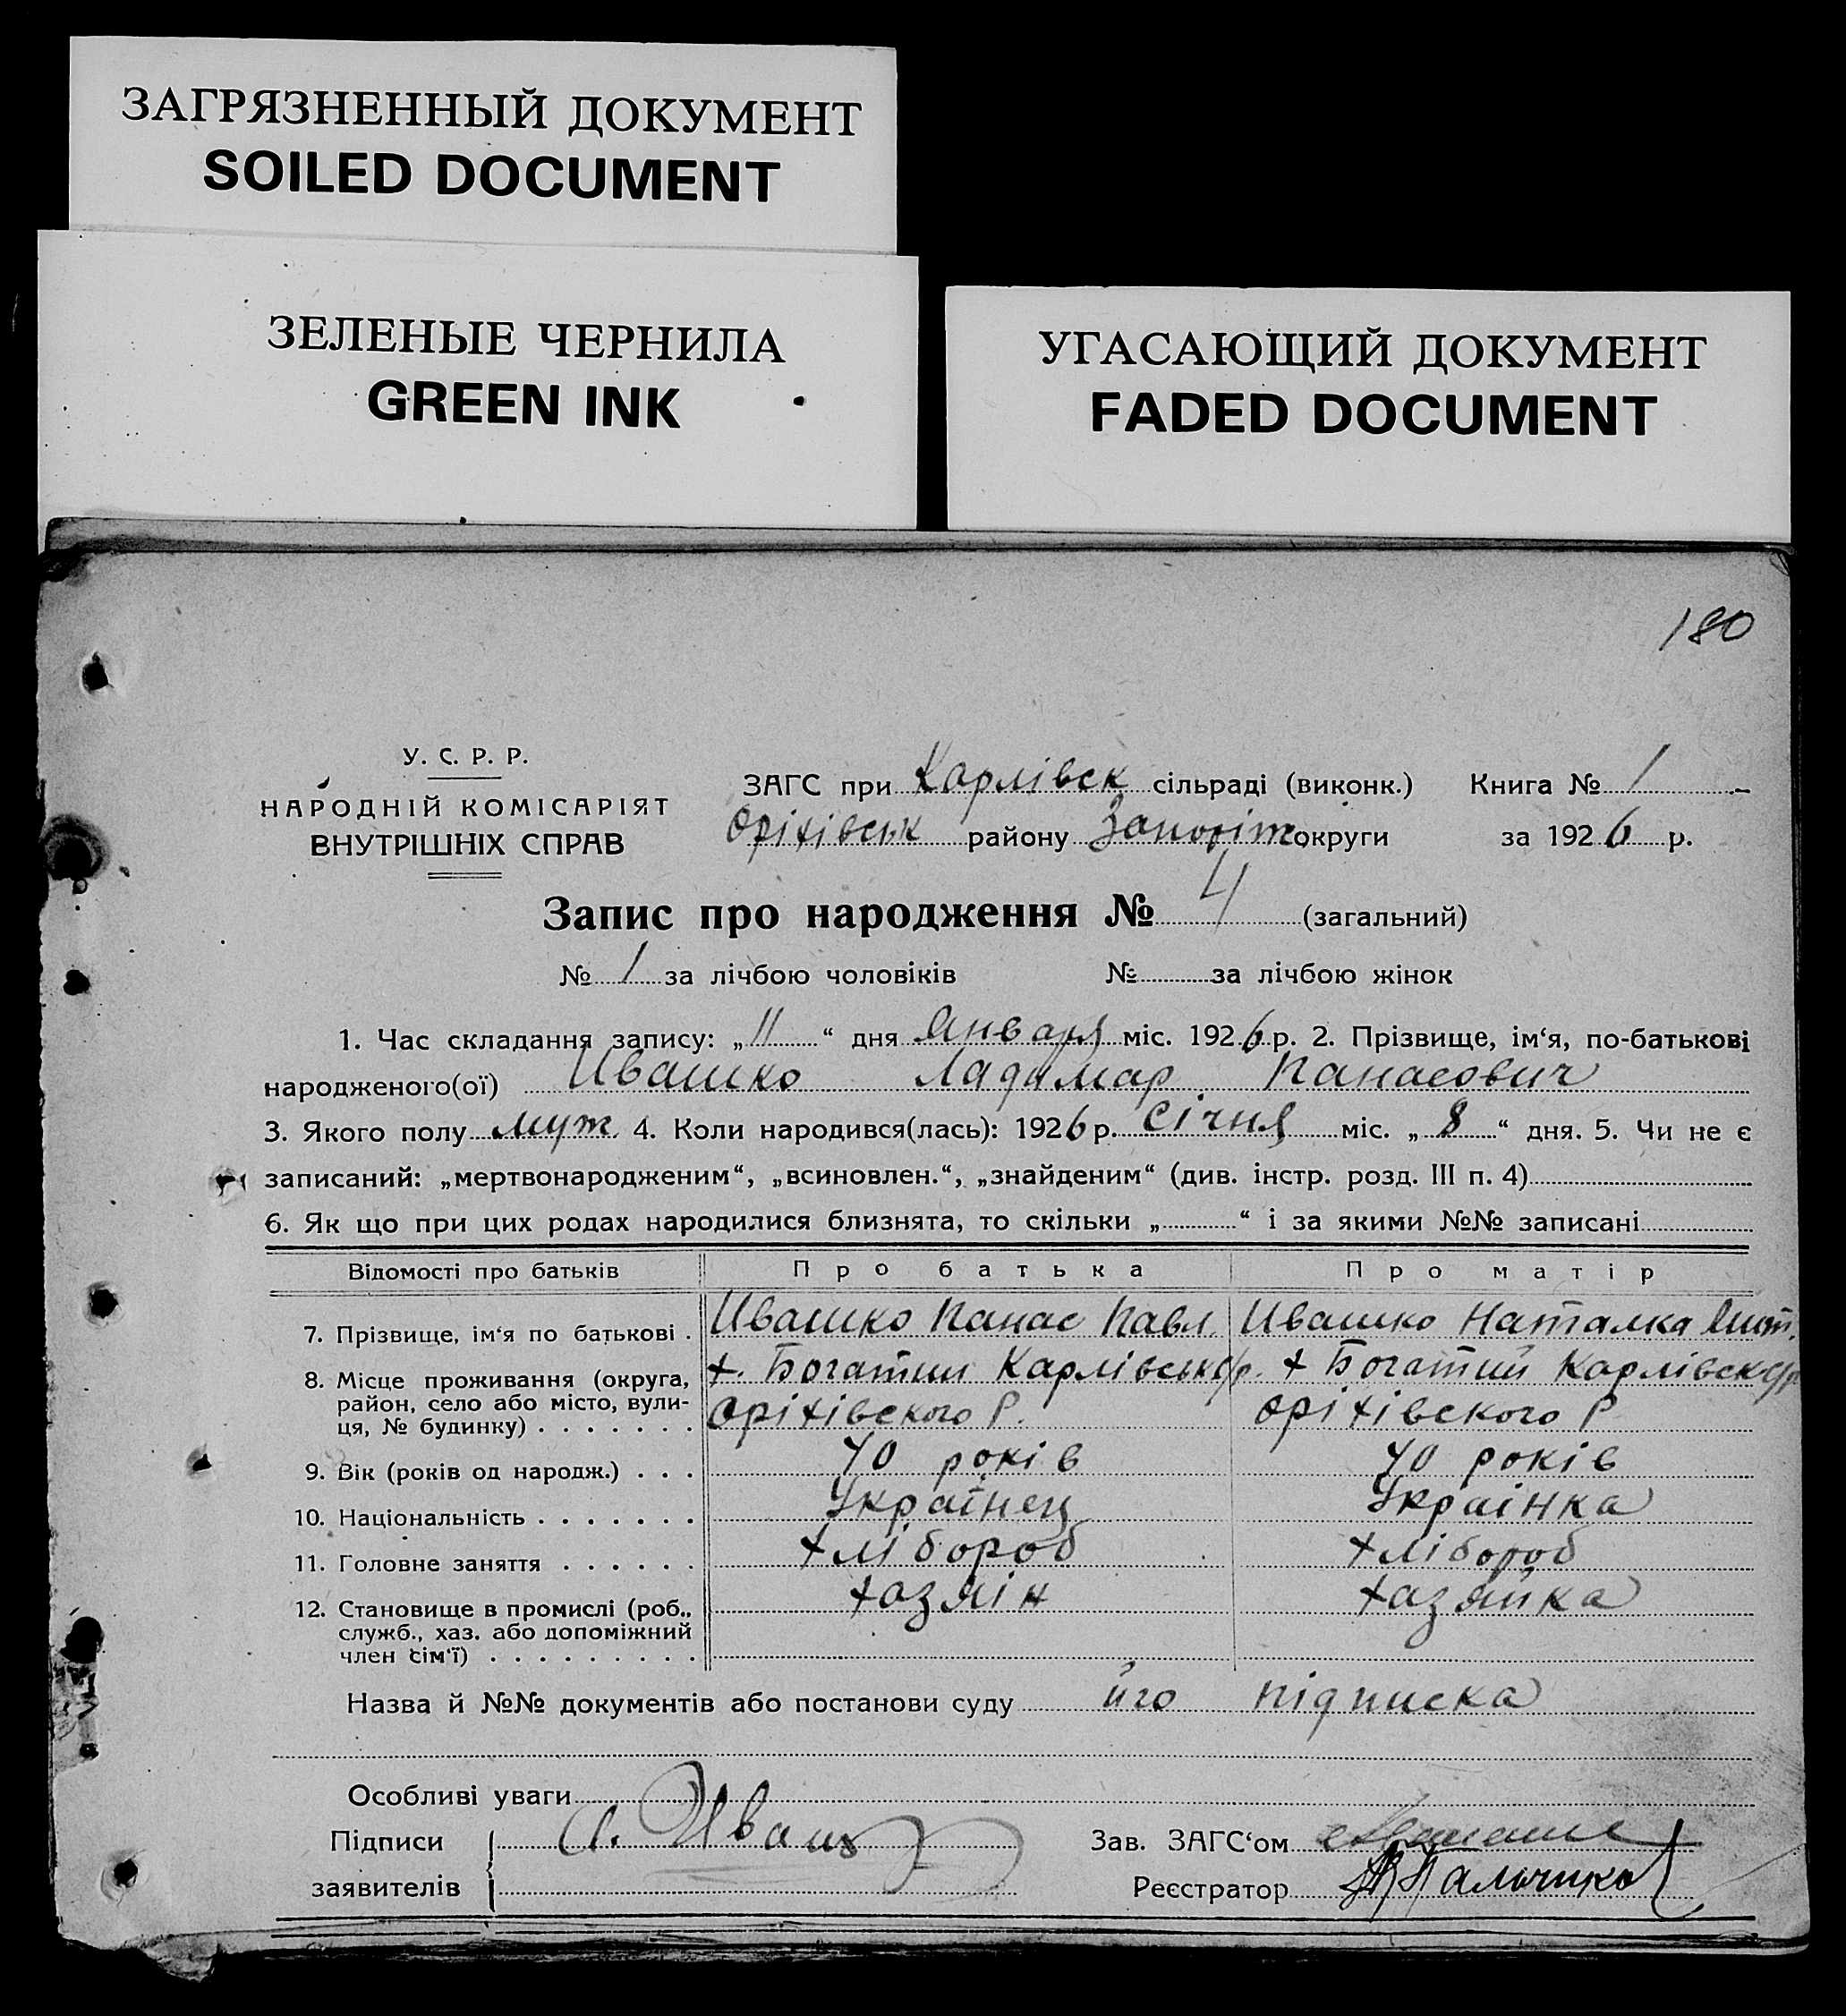 ЗАГРЯЗНЕННЫЙ ДОКУМЕНТ
SOILED DOCUMENT
ЗЕЛЕНЫЕ ЧЕРНИЛА
GREEN INK
УГАСАЮЩИЙ ДОКУМЕНТ
FADED DOCUMENT
180
У. С. Р. Р.
НАРОДНІЙ КОМІСАРІЯТ
ВНУТРІШНІХ СПРАВ
ЗАГС при Карлівск сільраді (виконк.) Книга № 1
Оріхівськ району Запоріж округи за 1926 р.
Запис про народження № 4 (загальний)
№ 1 за лічбою чоловіків № за лічбою жінок
1. Час складання запису: „11“ дня Января міс. 1926 р. 2. Прізвище, ім‘я, по-батькові
народженого(ої) Ивашко Ладимар Панасович
3. Якого полу муж. 4. Коли народився(лась): 1926 р. Січня міс. „8“ дня. 5. Чи не є
записаний: „мертвонародженим“, „всиновлен.“, „знайденим“ (див. інстр. розд. III п. 4)
6. Як що при цих родах народилися близнята, то скільки „ “ і за якими №№ записані
Відомості про батьків Про батька Про матір
7. Прізвище, ім‘я по батькові . Ивашко Панас Павл. Ивашко Наталка
8. Місце проживання (округа, х. Богатий Карлівськ с/р. х Богатий Карлівск с/р
район, село або місто, вули- Оріхівского Р. Оріхівского Р
ця, № будинку) . . . . . . .
9. Вік (років од народж.) . . . 40 років 40 років
10. Національність . . . . . . . Українец Украінка
11. Головне заняття . . . . . . хлібороб хлібороб
12. Становище в промислі (роб., хазяін хазяйка
служб., хаз. або допоміжний
член сім‘ї) . . . . . . . . .
Назва й №№ документів або постанови суду його підписка
Особливі уваги
Підписи А. Иваш Зав. ЗАГС‘ом
заявителів Реєстратор